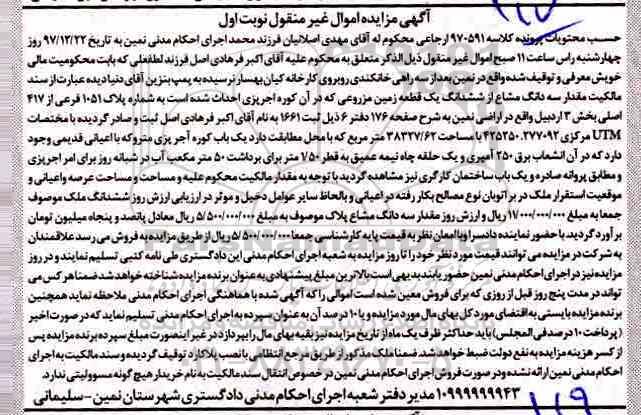 آگهی مزایده اموال غیر منقول نوبت اول
حسب محتویات پرونده کلاسه ۹۷۰۵۹۱ ارجاعی محکوم له آقای مهدی اصلانیان فرزند محمد اجرای احکام مدنی نمین به تاریخ ۹۷/۱۲/۲۲ روز
چهارشنبه راس ساعت ۱۱ صبح اموال غیر منقول ذیل الذکر متعلق به محکوم علیه آقای اکبر فرهادی اصل فرزند لطفعلی که بابت محکومیت مالی
خویش معرفی و توقیف شده واقع در نمین بعد از سه راهی خانکندی روبروی کارخانه کیان بهسار نرسیده به پمپ بنزین آقای دنیا دیده عبارت از سند
مالکیت مقدار سه دانگ مشاع از ششدانگ یک قطعه زمین مزروعی که در آن کوره آجرپزی احداث شده است به شماره پلاک ۱۰۵۱ فرعی از ۴۱۷
اصلی بخش ۳ اردبیل واقع در اراضی نمین به شرح صفحه ۱۷۶ دفتر ۶ ذیل ثبت ۱۶۶۱ به نام آقای اکبر فرهادی اصل ثبت و صادر گردیده با مختصات
UTM مرکزی ۴۲۵۲۵۰.۲۷۷۰۹۲ با مساحت ۳۸۳۲۷/۶۲ متر مربع که با محل مطابقت دارد یک باب کوره آجر پزی متروکه با اعیانی قدیمی وجود
دارد که در آن انشعاب برق ۲۵۰ آمپری و یک حلقه چاه نیمه عمیق به قطر ۱/۵۰ متر برای برداشت ۵۰ متر مکعب آب در شبانه روز برای امر آجرپزی
و مطابق پروانه صادره و یک باب ساختمان کارگری نیز مشاهده گردید با توجه به مقدار مالکیت محکوم علیه و مساحت و مساحت عرصه و اعیانی و
موقعیت استقرار ملک در بر اتوبان نوع مصالح بکار رفته در اعیانی و بالحاظ سایر عوامل دخیل و موثر در ارزیابی ارزش روز ششدانگ ملک موصوف
جمعا به مبلغ ۱۱/۰۰۰/۰۰۰/۰۰۰ ریال و ارزش روز مقدار سه دانگ مشاع پلاک موصوف به مبلغ ۵/۵۰۰/۰۰۰/۰۰۰ ریال معادل پانصد و پنجاه میلیون تومان
برآورد گردید با حضور نماینده دادسرا وباامعان نظر به قیمت پایه کارشناسی جمعا ۵/۵۰۰/۰۰۰/۰۰۰ ریال از طریق مزایده به فروش می رسد علاقمندان
به شرکت در مزایده می توانند قیمت مورد نظر خود را تا روز مزایده به شعبه اجرای احکام مدنی این دادگستری طی نامه کتبی تسلیم نمایند و در روز
مزایده نیز در اجرای احکام مدنی نمین حضور یابند بدیهی است بالاترین مبلغ پیشنهادی به عنوان برنده مزایده شناخته خواهد شد ضمنا هر کس می
تواند در مدت پنج روز قبل از روزی که برای فروش معین شده است اموالی را که آگهی شده با هماهنگی اجرای احکام مدنی ملاحظه نماید همچنین
برنده مزایده بایستی به اقتضای مورد کل بهای مال مورد مزایده و یا ۱۰ در صد آن به عنوان سپرده به اجرای احکام مدنی تسلیم نماید که در صورت اخیر
( پرداخت ۱۰ در صد فی المجلس) باید حداکثر ظرف یک ماه از تاریخ مزایده نیز بقیه بهای مال را بپردازد در غیر اینصورت مبلغ سپرده برنده مزایده پس
از کسر هزینه مزایده به نفع دولت ضبط خواهد شد. ضمنا ملک مذکور از طریق مرجع انتظامی با نصب پلاکارد توقیف گردیده و سند مالکیت به اجرای
احکام مدنی نمین ارائه نشده و در صورت فروش اجرای احکام مدنی نمین در خصوص انتقال سند مالکیت به نام خریدار هیچ گونه مسوولیتی ندارد.
۱۰۹۹۹۹۹۹۴۳ مدیر دفتر شعبه اجرای احکام مدنی دادگستری شهرستان نمین - سلیمانی